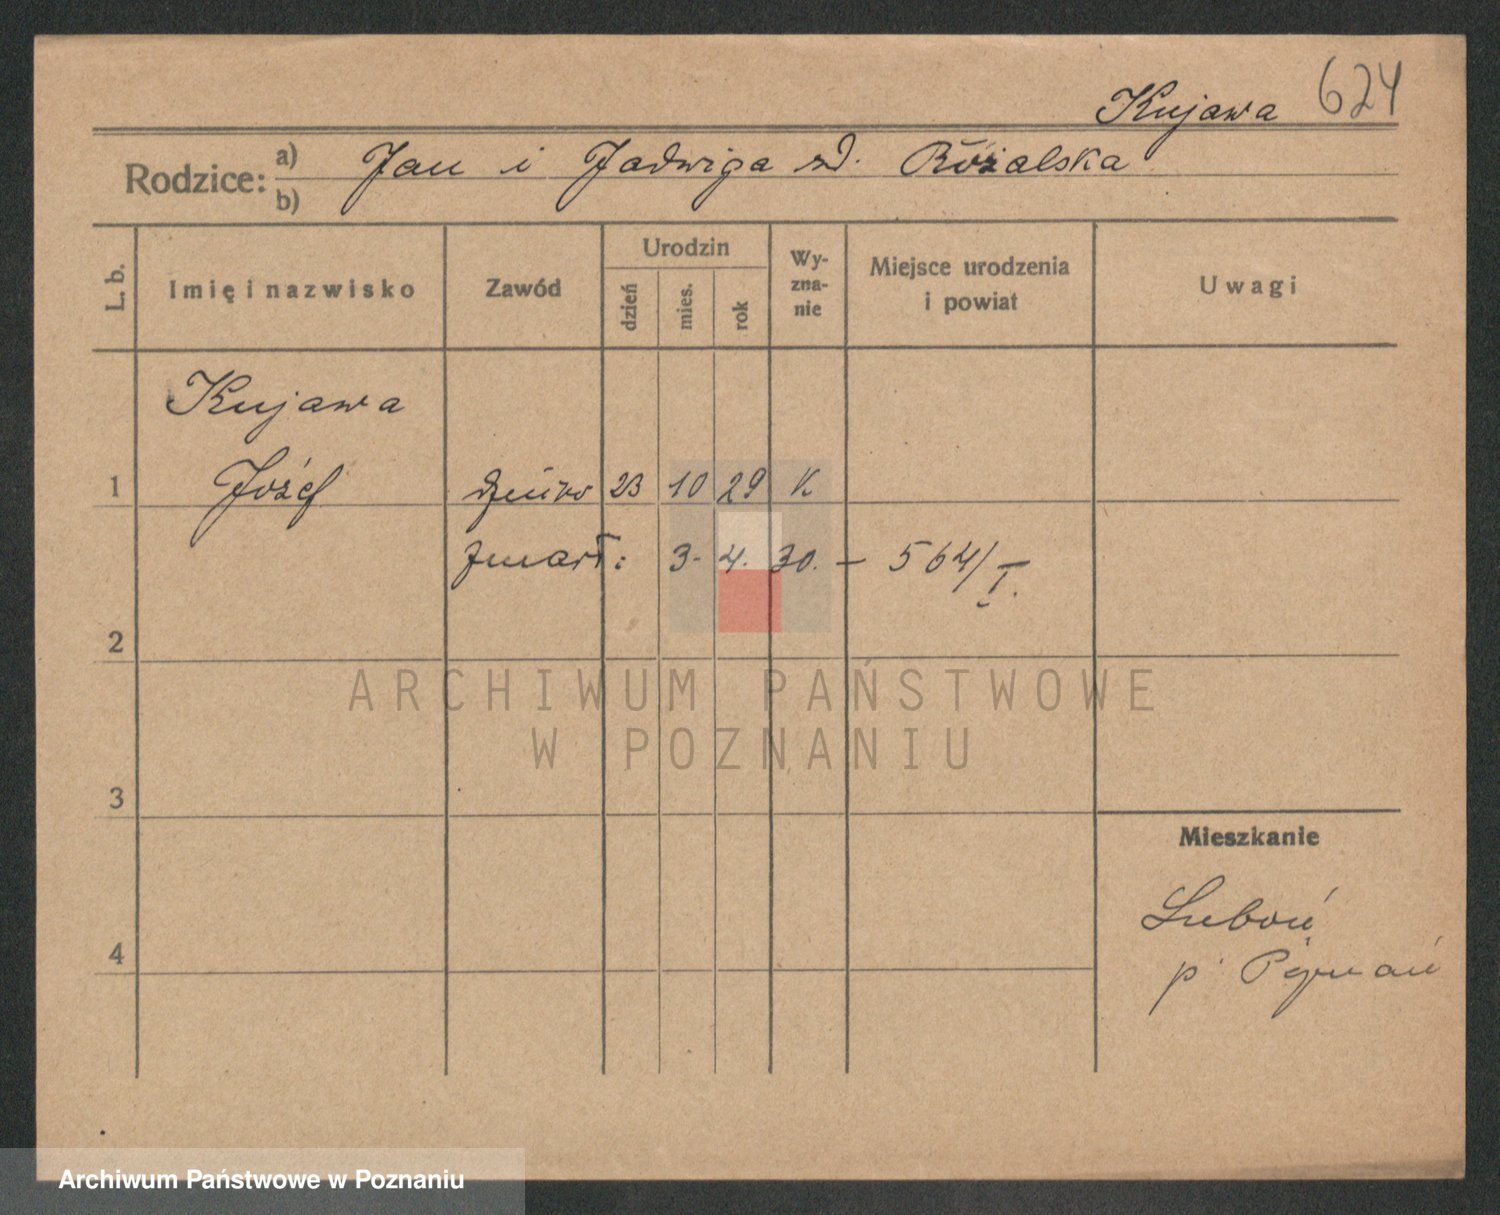 Kujawa 624
Rodzice: a) Jan i Jadwiga zd. Różalska
b)
L. b. Imię i nazwisko Zawód Urodzin dzień mies. rok Wy-zna-nie Miejsce urodzenia i powiat Uwagi
Kujawa
1 Józef 23 10 29 K
zmarł: 3. 4. 30. – 564/I.
2
ARCHIWUM PAŃSTWOWE
W POZNANIU
3
Mieszkanie
Luboń
4
p. Poznań
Archiwum Państwowe w Poznaniu